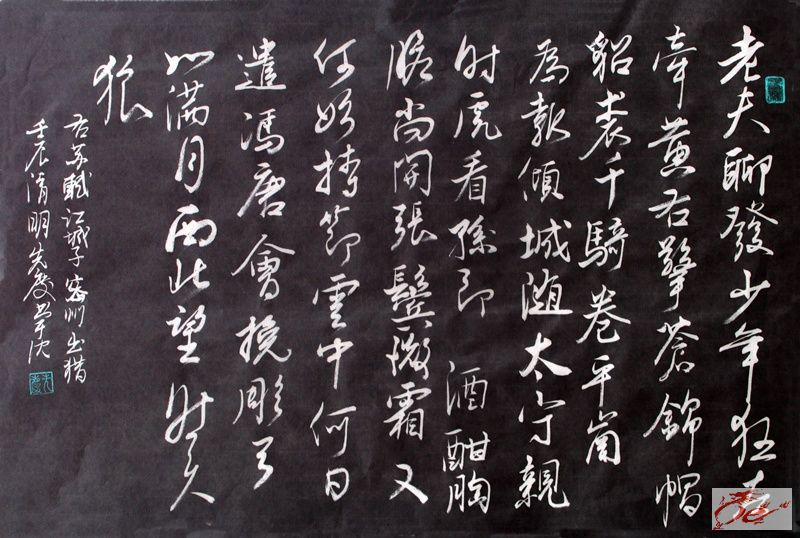 老夫聊發少年狂左
牽黃右擎蒼錦帽
貂裘千騎卷平崗
為報傾城随太守親
射虎看孫郎 酒酣胸
膽尚開張鬢微霜又
何妨持節雲中何日
遣馮唐會挽彫弓
如滿月西北望射天
狼
右蘇軾江城子密州出猎
壬辰清明先慶